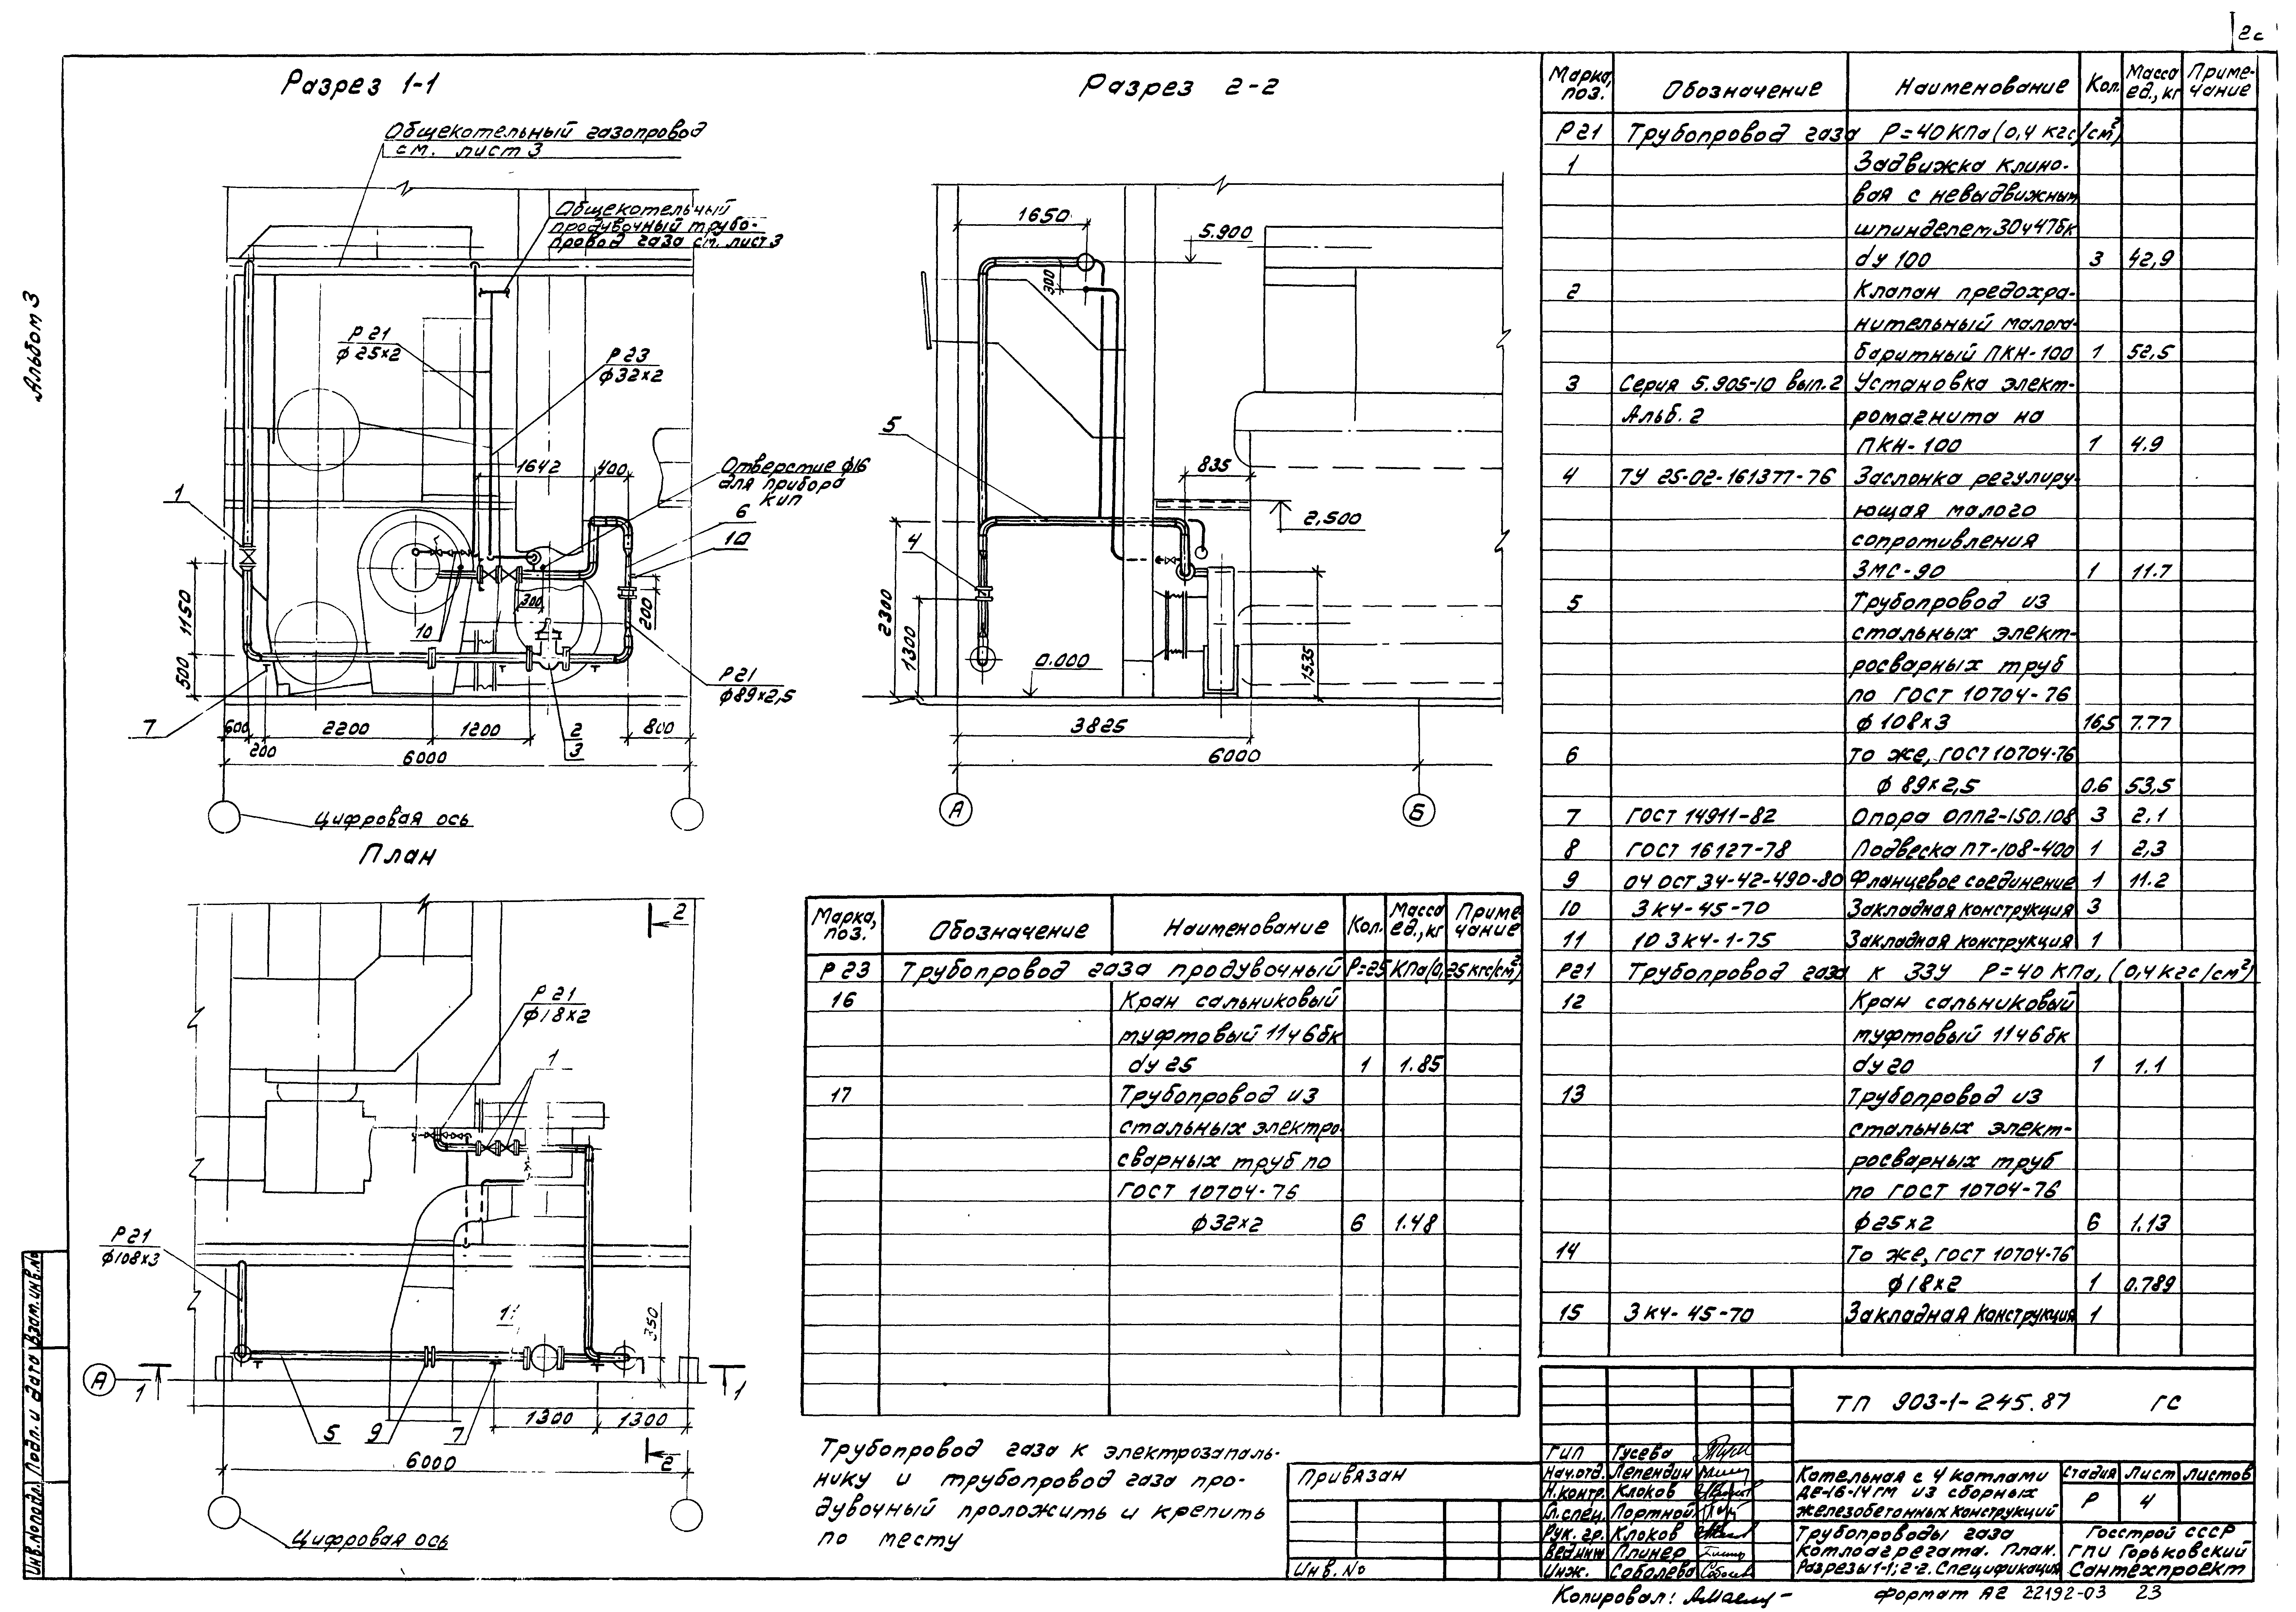 2с
Альбом 3
Разрез 1-1
Общекотельный газопровод
см. лист 3
Общекотельный
продувочный трубо-
провод газа см. лист 3
Р21
ф25х2
Р23
ф32х2
1642
400
Отверстие ф16
для прибора
КИП
1
6
10
1150
500
300
200
10
Р21
ф89х2,5
7
600
200
2200
1200
2
3
800
6000
Цифровая ось
Разрез 2-2
1650
5.900
300
5
835
2,500
4
2300
1300
0.000
1535
3825
6000
А
Б
План
2
Р21
ф18х2
1
Р21
ф108х3
350
А
1
1
5
9
7
1300
1300
2
6000
Цифровая ось
Марка, поз. Обозначение Наименование Кол. Масса ед., кг Приме-чание
Р23 Трубопровод газа продувочный Р=25 КПа (0,25 кгс/см²)
16 Кран сальниковый
муфтовый 11ч6бк
dу 25 1 1.85
17 Трубопровод из
стальных электро-
сварных труб по
ГОСТ 10704-76
ф32х2 6 1.48
Трубопровод газа к электрозапаль-
нику и трубопровод газа про-
дувочный проложить и крепить
по месту
Марка, поз. Обозначение Наименование Кол. Масса ед., кг Приме-чание
Р21 Трубопровод газа Р=40КПа (0,4 кгс/см²)
1 Задвижка клино-
вая с невыдвижным
шпинделем 30ч47бк
dу 100 3 42,9
2 Клапан предохра-
нительный малога-
баритный ПКН-100 1 52,5
3 Серия 5.905-10 вып.2 Установка элект-
Альб. 2 ромагнита на
ПКН-100 1 4.9
4 ТУ 25-02-161377-76 Заслонка регулиру-
ющая малого
сопротивления
ЗМС-90 1 11.7
5 Трубопровод из
стальных элект-
росварных труб
по ГОСТ 10704-76
ф108х3 16,5 7.77
6 То же, ГОСТ 10704-76
ф 89х2,5 0.6 53,5
7 ГОСТ 14911-82 Опора ОПП2-150.108 3 2.1
8 ГОСТ 16127-78 Подвеска ПТ-108-400 1 2,3
9 04 ОСТ 34-42-490-80 Фланцевое соединение 1 11.2
10 ЗК4-45-70 Закладная конструкция 3
11 10 ЗК4-1-75 Закладная конструкция 1
Р21 Трубопровод газа к ЗЗУ Р=40 КПа, (0,4кгс/см²)
12 Кран сальниковый
муфтовый 11ч6бк
dу20 1 1.1
13 Трубопровод из
стальных элект-
росварных труб
по ГОСТ 10704-76
ф25х2 6 1.13
14 То же, ГОСТ 10704-76
ф18х2 1 0.789
15 ЗК4-45-70 Закладная конструкция 1
ТП 903-1-245.87 ГС
Привязан
Инв. №
ГИП Гусева
Нач.отд. Лепендин
Н.контр. Клоков
Гл.спец. Портной
Рук. гр. Клоков
Вед.инж Плинер
Инж. Соболева
Котельная с 4 котлами
ДЕ-16-14ГМ из сборных
железобетонных конструкций
Стадия Лист Листов
Р 4
Трубопроводы газа
котлоагрегата. План.
Разрезы 1-1; 2-2. Спецификация
Госстрой СССР
ГПИ Горьковский
Сантехпроект
Копировал:
Формат А2 22192-03 23
Инв.№ подл. Подп. и дата Взам.инв.№